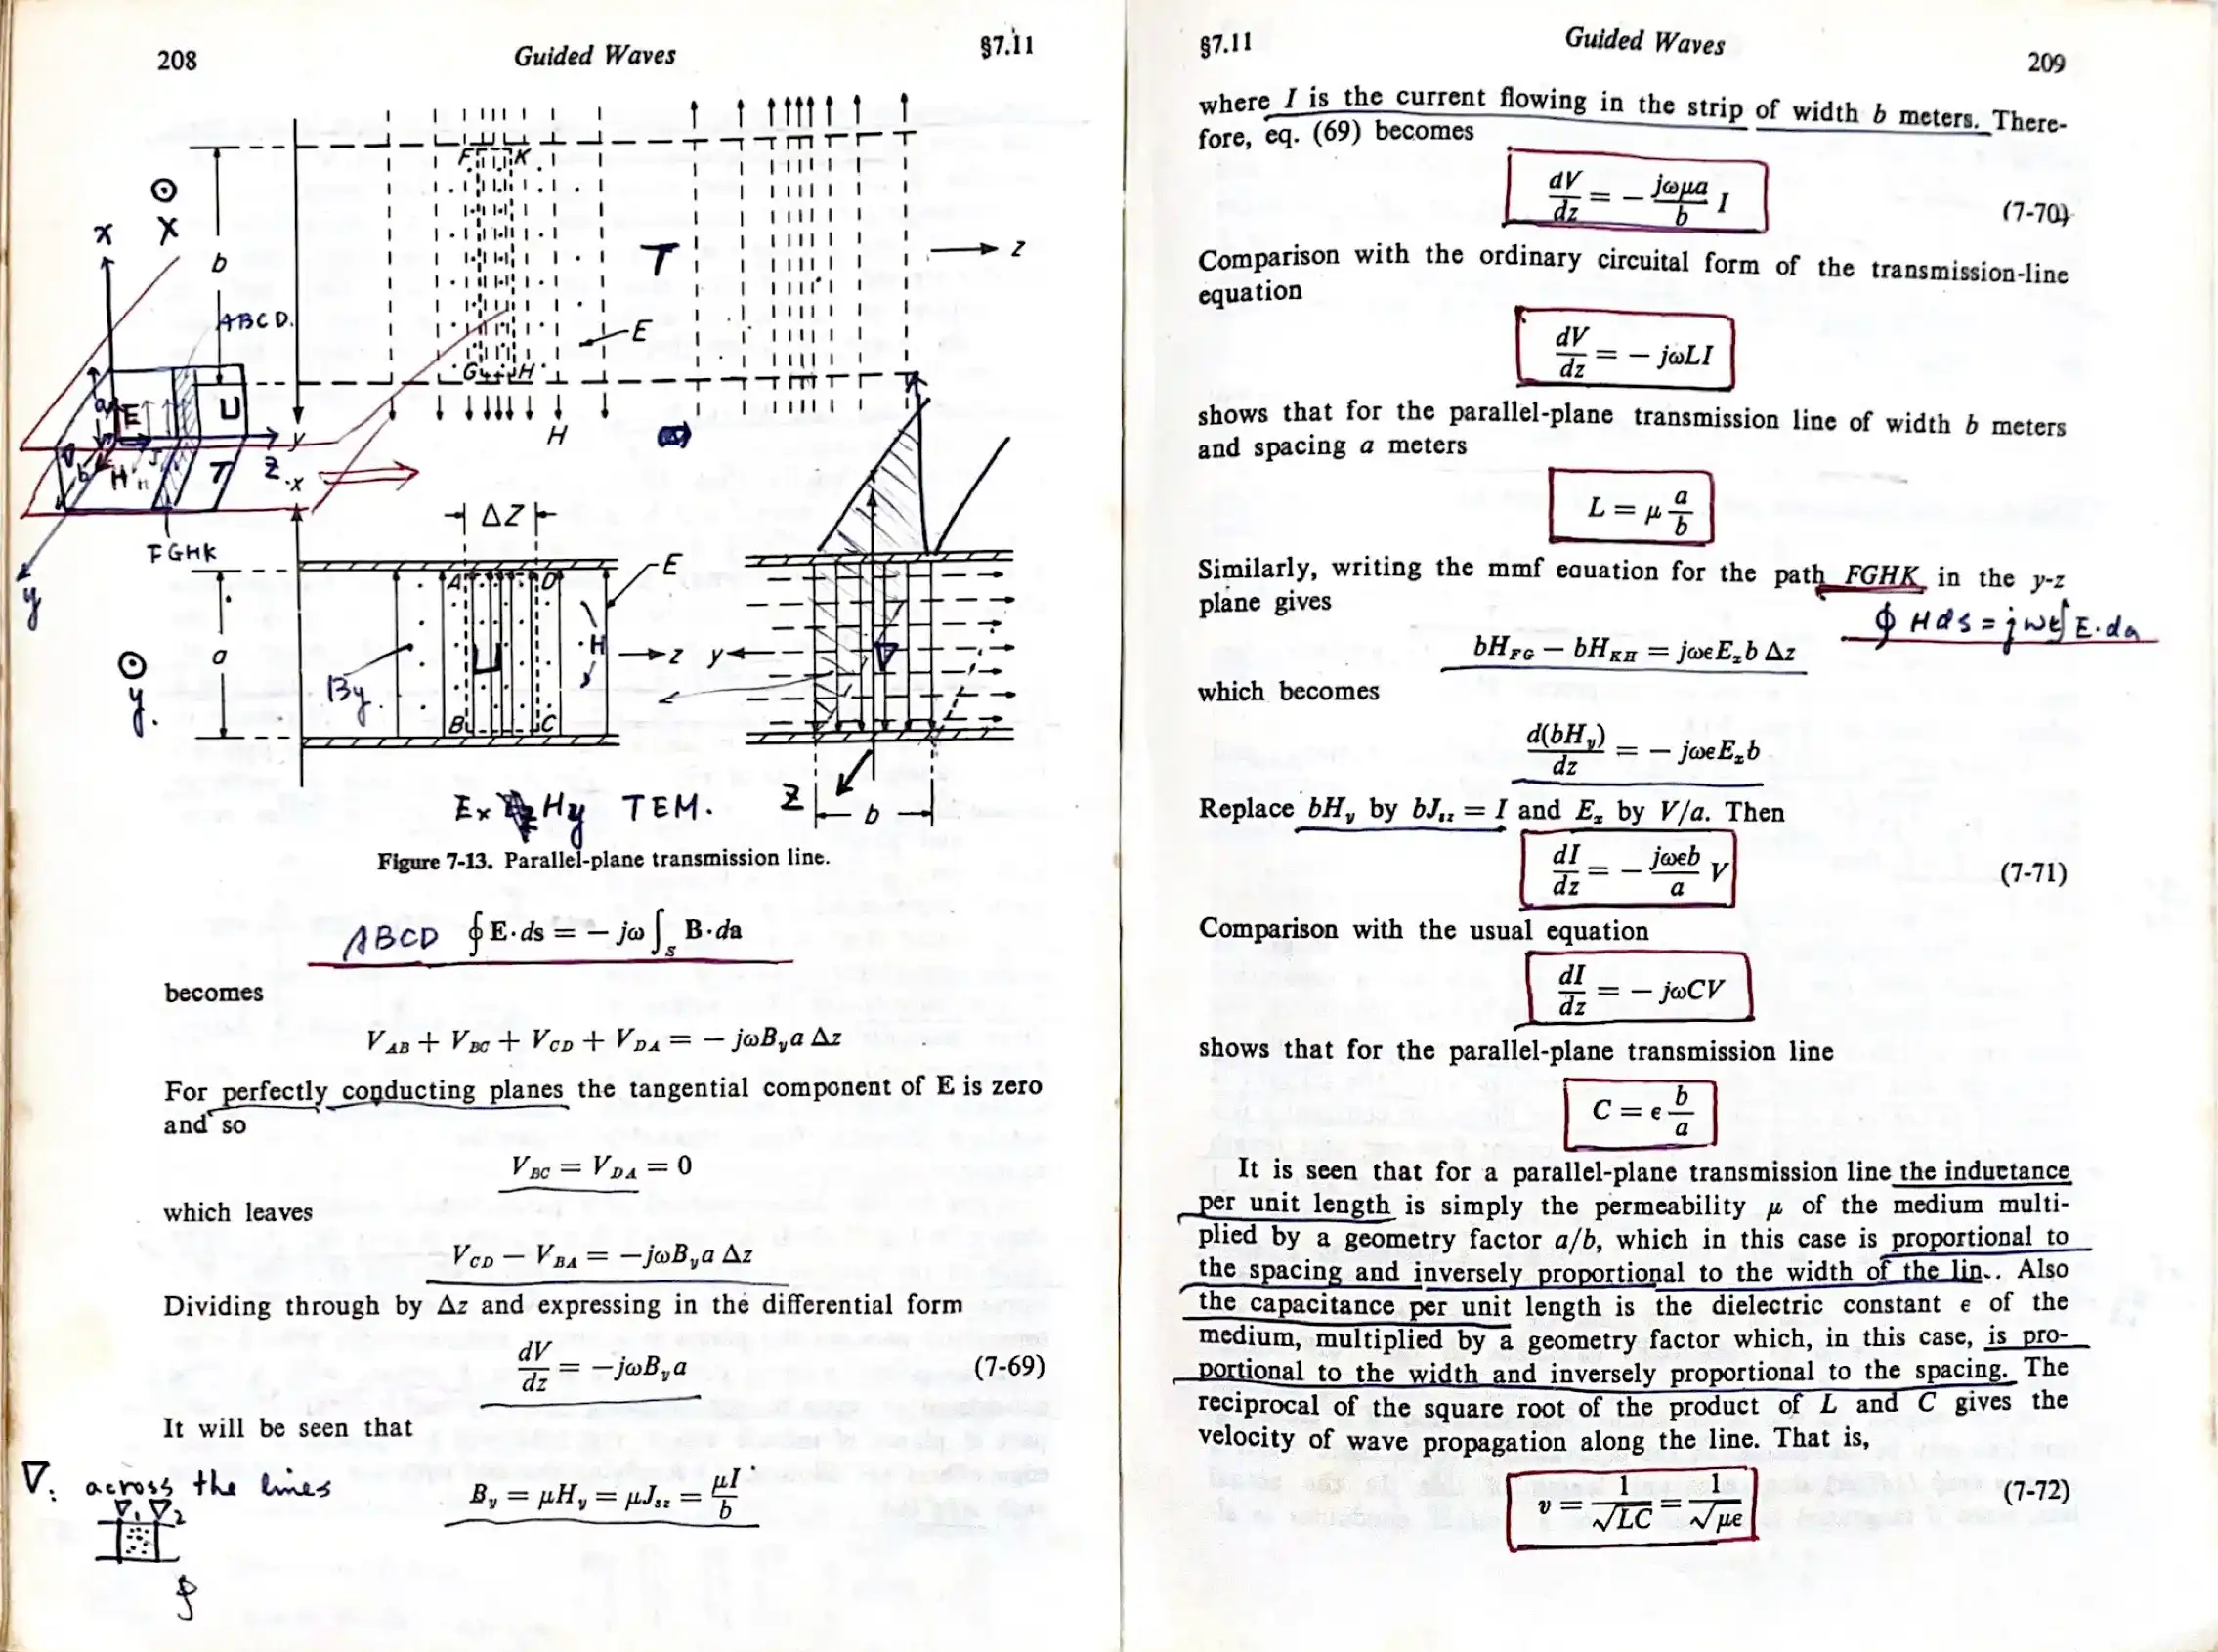 208 Guided Waves §7.11
F K
X
x
b
T
z
ABCD.
E
G H
a E U
H
y
b H J T Z
x
ΔZ
FGHK
y
A D
E
a
H
z
y
U
By.
y.
B C
Z
b
Ex Hy TEM.
Figure 7-13. Parallel-plane transmission line.
ABCD ∮ E·ds = − jω ∫_S B·da
becomes
V_AB + V_BC + V_CD + V_DA = − jωB_y a Δz
For perfectly conducting planes the tangential component of E is zero
and so
V_BC = V_DA = 0
which leaves
V_CD − V_BA = −jωB_y a Δz
Dividing through by Δz and expressing in the differential form
dV/dz = −jωB_y a (7-69)
It will be seen that
V. across the lines
V₁ V₂
B_y = μH_y = μJ_sz = μI/b
§7.11 Guided Waves 209
where I is the current flowing in the strip of width b meters. There-
fore, eq. (69) becomes
dV/dz = − jωμa/b I (7-70)
Comparison with the ordinary circuital form of the transmission-line
equation
dV/dz = − jωLI
shows that for the parallel-plane transmission line of width b meters
and spacing a meters
L = μ a/b
Similarly, writing the mmf equation for the path FGHK in the y-z
plane gives
∮ H ds = jωε∫ E·da
bH_FG − bH_KH = jωεE_x b Δz
which becomes
d(bH_y)/dz = − jωεE_x b
Replace bH_y by bJ_sz = I and E_x by V/a. Then
dI/dz = − jωεb/a V (7-71)
Comparison with the usual equation
dI/dz = − jωCV
shows that for the parallel-plane transmission line
C = ε b/a
It is seen that for a parallel-plane transmission line the inductance
per unit length is simply the permeability μ of the medium multi-
plied by a geometry factor a/b, which in this case is proportional to
the spacing and inversely proportional to the width of the lin.. Also
the capacitance per unit length is the dielectric constant ε of the
medium, multiplied by a geometry factor which, in this case, is pro-
portional to the width and inversely proportional to the spacing. The
reciprocal of the square root of the product of L and C gives the
velocity of wave propagation along the line. That is,
v = 1/√LC = 1/√με (7-72)